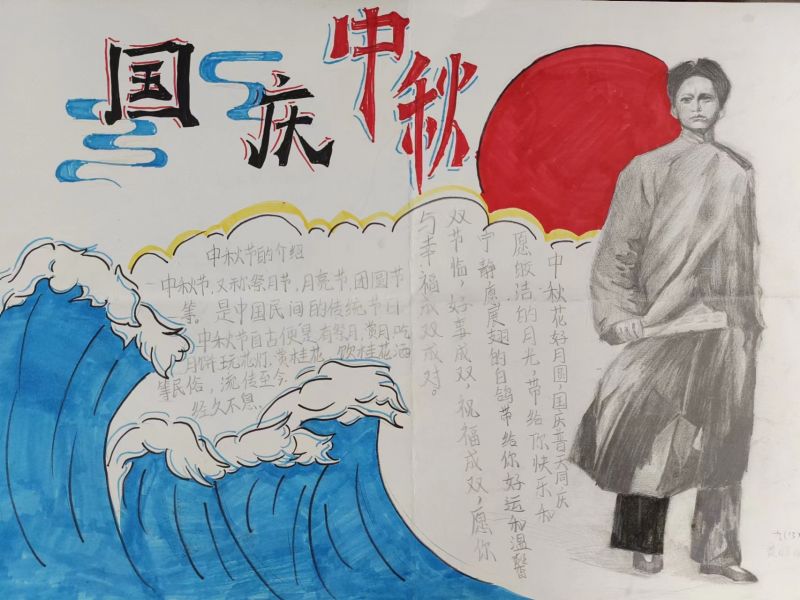 国庆
中秋
中秋节的介绍
中秋节,又称祭月节,月亮节,团圆节
等。是中国民间的传统节日
中秋节自古便是有祭月,赏月,吃
月饼,玩花灯,赏桂花,饮桂花酒
等民俗,流传至今
经久不息.
中秋花好月圆,国庆普天同庆
愿皎洁的月光,带给你快乐和
宁静,愿展翅的白鸽带给你好运和温馨
双节临,好事成双,祝福成双,愿你
与幸福成双成对。